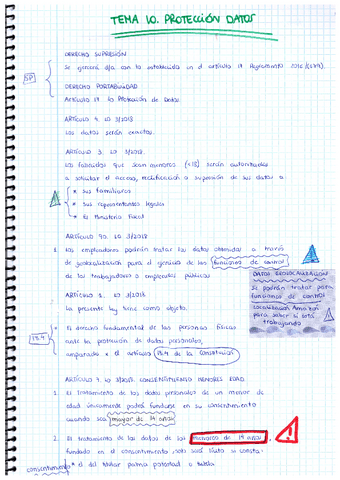 TEMA 10. PROTECCIÓN DATOS
DERECHO SUPRESIÓN
Se ejercerá d/a con lo establecido en el artículo 17 Reglamento 2016/(679).
SP
DERECHO PORTABILIDAD
Artículo 17 lo Protección de Datos.
ARTÍCULO 4. LO 3/2018
Los datos serán exactos.
ARTÍCULO 3. LO 3/2018
Los fallecidos que sean menores (<18) serán autorizados
a solicitar el acceso, rectificación o supresión de sus datos a
* sus familiares
* sus representantes legales
* El Ministerio Fiscal
ARTÍCULO 90. LO 3/2018
1. Los empleadores podrán tratar los datos obtenidos a través
de geolocalización para el ejercicio de las funciones de control
de los trabajadores o empleados públicos
DATOS GEOLOCALIZACIÓN
Se podrán tratar para
funciones de control
Localización Amazon
para saber si está
trabajando
ARTÍCULO 1. LO 3/2018
La presente ley tiene como objeto:
18.4
* El derecho fundamental de las personas físicas
ante la protección de datos personales,
amparado x el artículo 18.4 de la Constitución
ARTÍCULO 7. LO 3/2018. CONSENTIMIENTO MENORES EDAD
1. El tratamiento de los datos personales de un menor de
edad únicamente podrá fundarse en su consentimiento
cuando sea mayor de 14 años
2. El tratamiento de los datos de los menores de 14 años
fundado en el consentimiento, solo será lícito si consta:
consentimiento * el del titular patria potestad o tutela